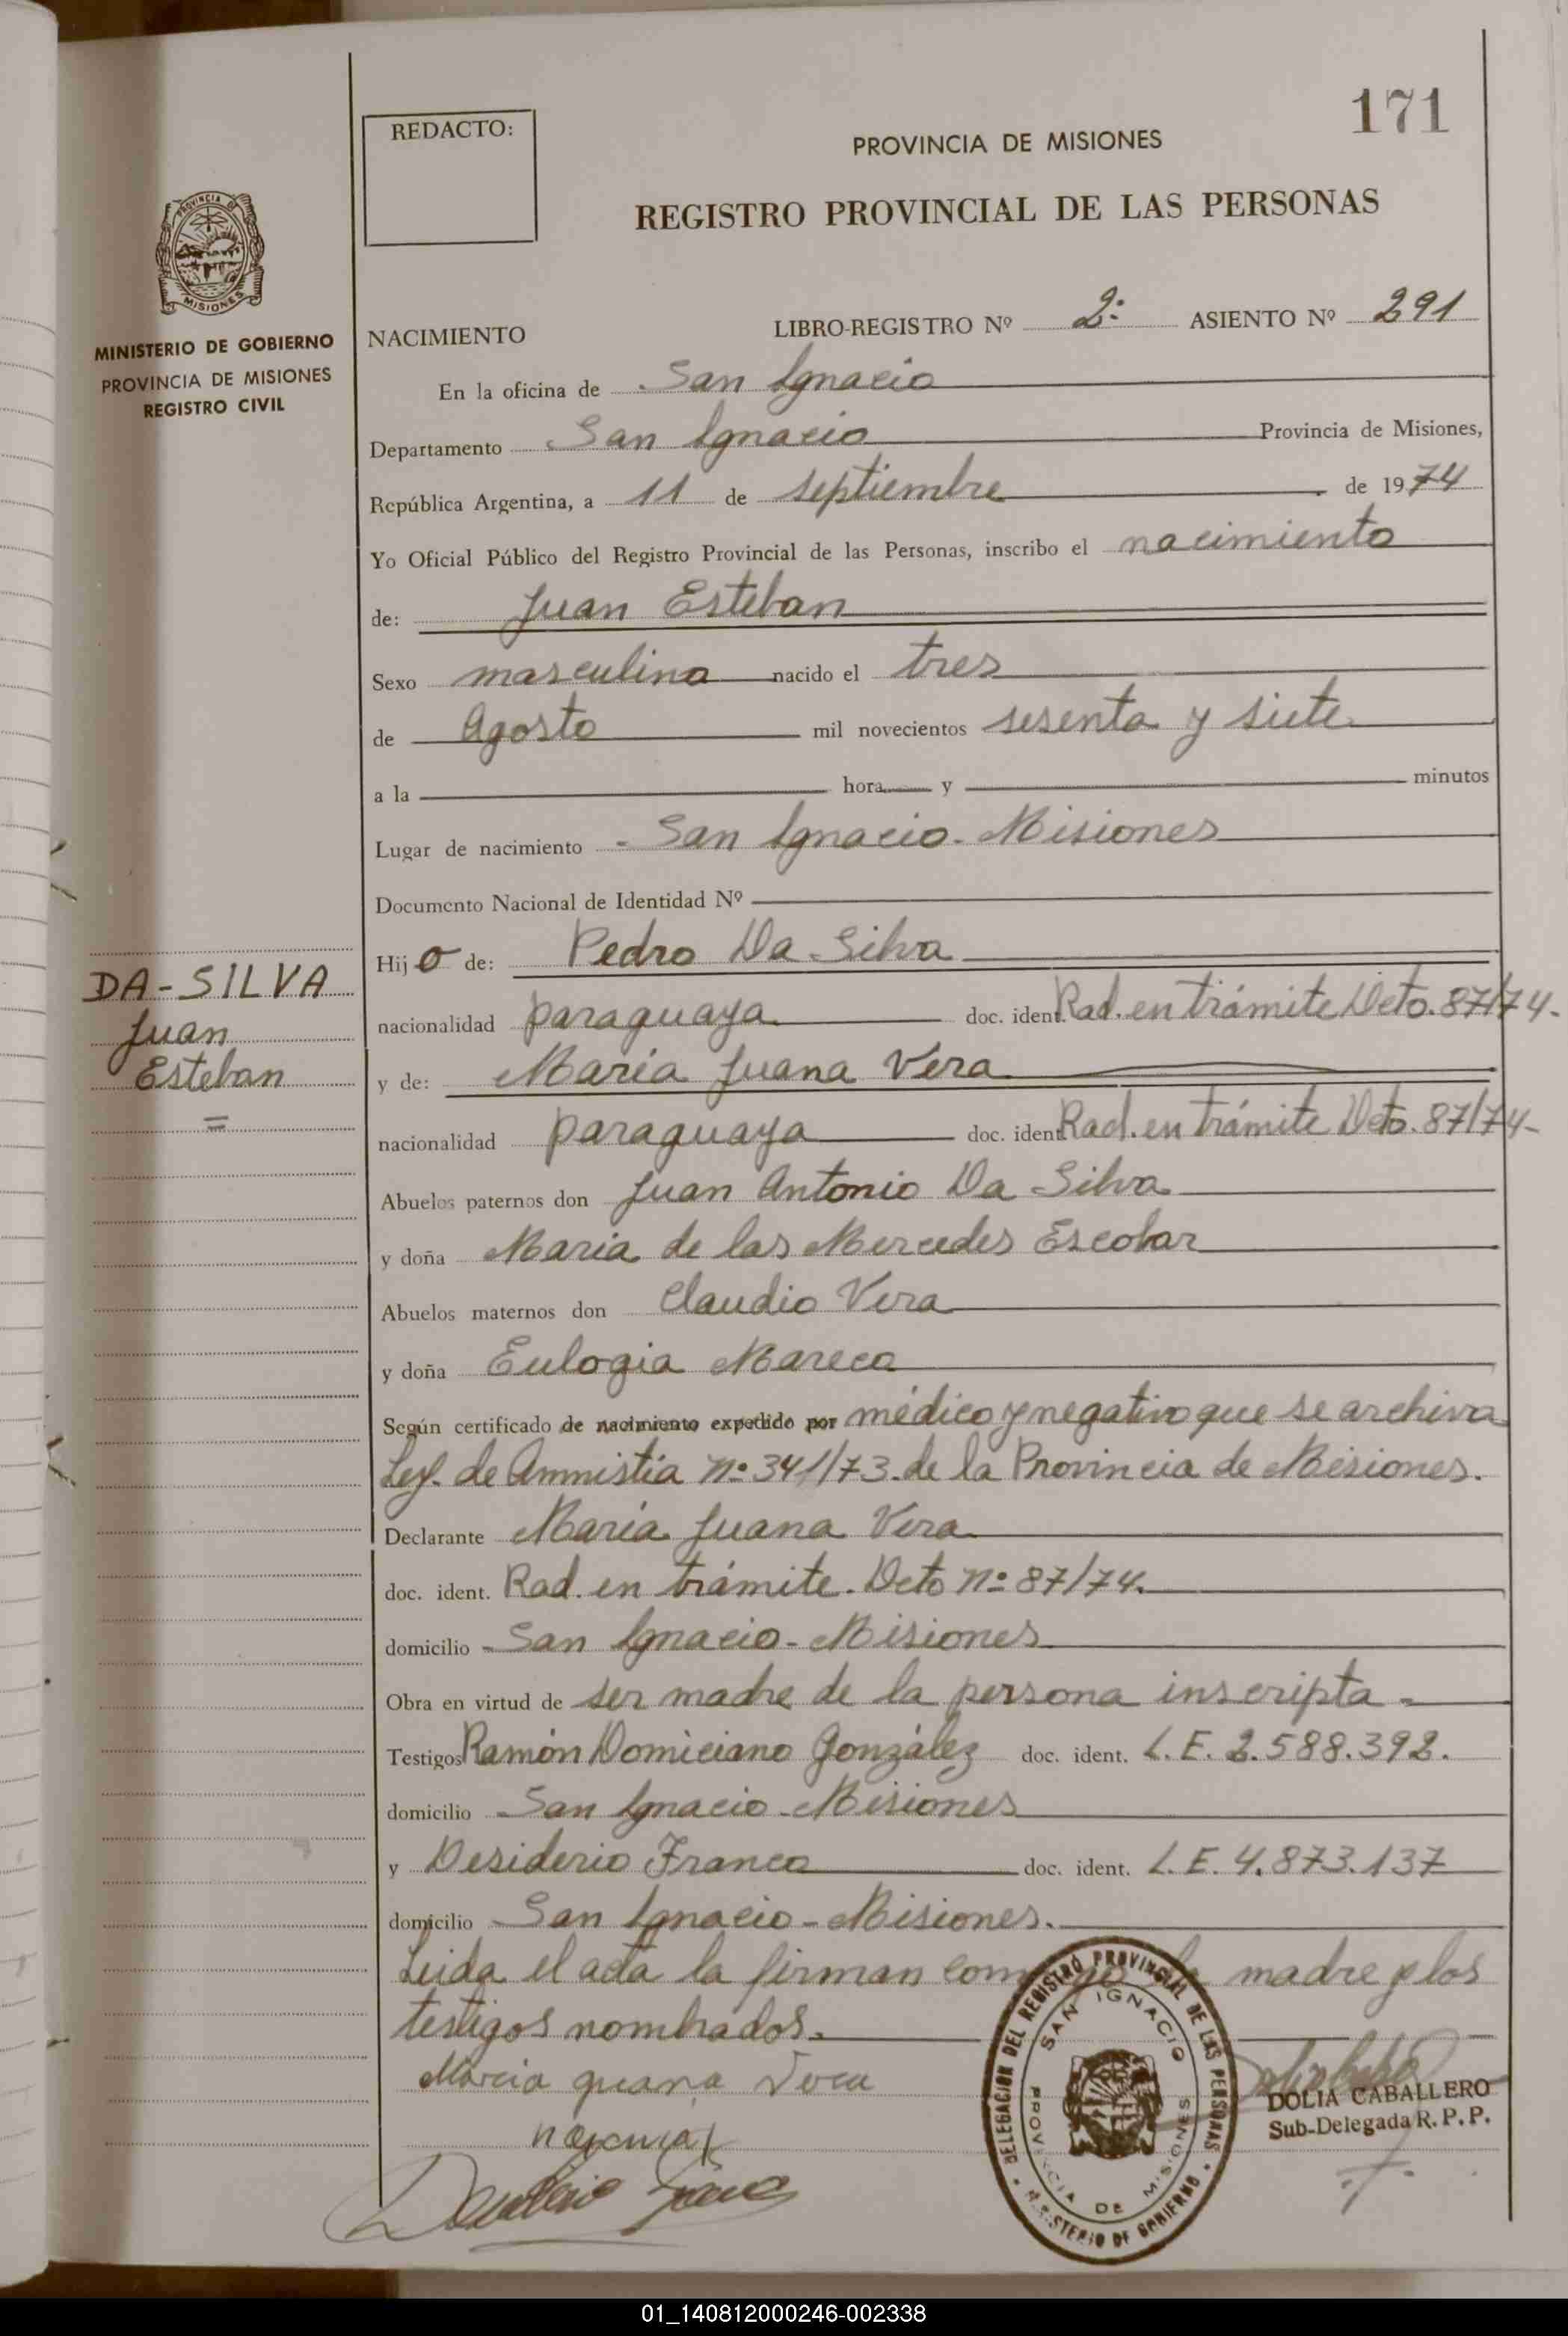 171
REDACTO:
PROVINCIA DE MISIONES
REGISTRO PROVINCIAL DE LAS PERSONAS
PROVINCIA DE
MISIONES
MINISTERIO DE GOBIERNO
PROVINCIA DE MISIONES
REGISTRO CIVIL
NACIMIENTO LIBRO-REGISTRO Nº 2º ASIENTO Nº 291
En la oficina de San Ignacio
Departamento San Ignacio Provincia de Misiones,
República Argentina, a 11 de septiembre de 1974
Yo Oficial Público del Registro Provincial de las Personas, inscribo el nacimiento
de: Juan Esteban
Sexo masculino nacido el tres
de Agosto mil novecientos sesenta y siete
a la hora y minutos
Lugar de nacimiento San Ignacio - Misiones
Documento Nacional de Identidad Nº
Hijo de: Pedro Da Silva
DA-SILVA
Juan
Esteban
nacionalidad paraguaya doc. ident. Rad. en trámite Dcto. 87/74.
y de: María Juana Vera
nacionalidad paraguaya doc. ident. Rad. en trámite Dcto. 87/74-
Abuelos paternos don Juan Antonio Da Silva
y doña Maria de las Mercedes Escobar
Abuelos maternos don Claudio Vera
y doña Eulogia Mareco
Según certificado de nacimiento expedido por médico y negativo que se archiva
Ley. de Amnistía nº 341/73. de la Provincia de Misiones.
Declarante María Juana Vera
doc. ident. Rad. en trámite. Dcto nº 87/74.
domicilio San Ignacio - Misiones
Obra en virtud de ser madre de la persona inscripta -
Testigos Ramón Domiciano González doc. ident. L.E. 2.588.392.
domicilio San Ignacio - Misiones
y Desiderio Franco doc. ident. L.E. 4.873.137
domicilio San Ignacio - Misiones.
Leida el acta la firman conmigo la madre y los
testigos nombrados.
Maria Juana Vera
DELEGACION DEL REGISTRO PROVINCIAL DE LAS PERSONAS
SAN IGNACIO
PROVINCIA DE MISIONES
MINISTERIO DE GOBIERNO
DOLIA CABALLERO
Sub-Delegada R. P. P.
01_140812000246-002338